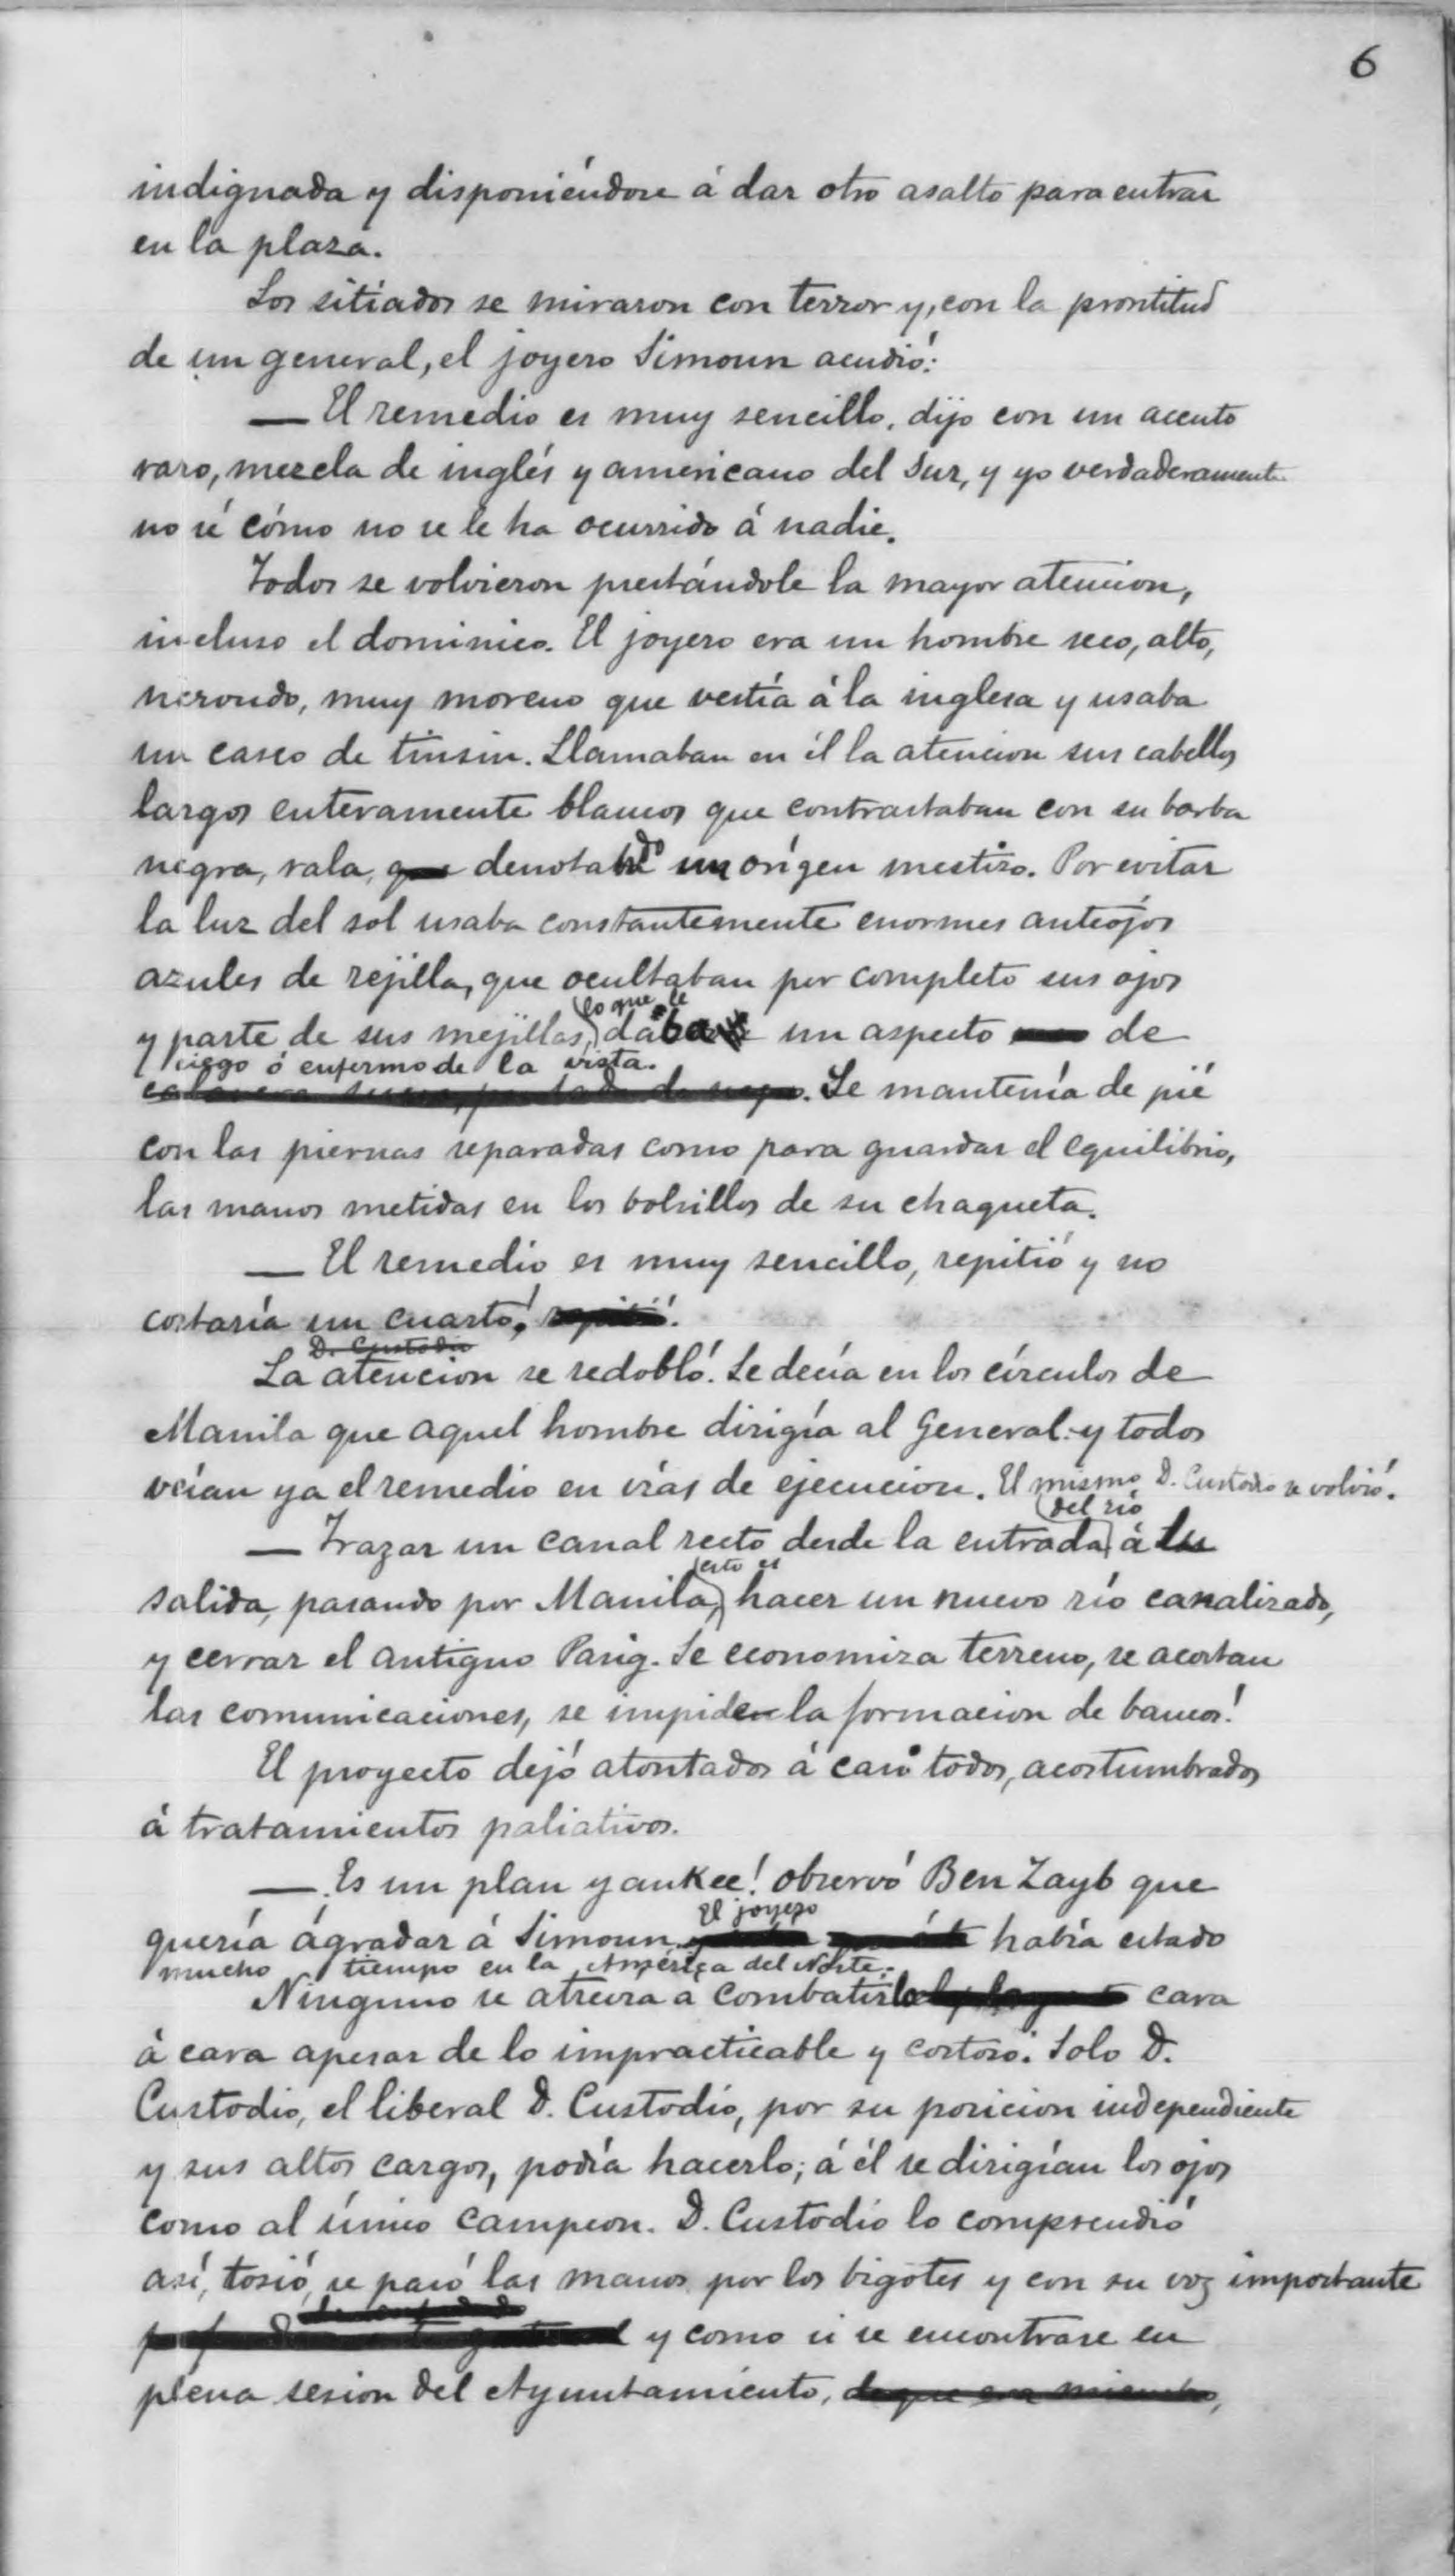 6
indignada y disponiéndose á dar otro asalto para entrar
en la plaza.
Los sitiados se miraron con terror y, con la prontitud
de un general, el joyero Simoun acudió:
— El remedio es muy sencillo, dijo con un acento
raro, mezcla de inglés y americano del Sur, y yo verdaderamente
no sé cómo no se le ha ocurrido á nadie.
Todos se volvieron prestándole la mayor atencion,
incluso el dominico. El joyero era un hombre seco, alto,
nervudo, muy moreno que vestía á la inglesa y usaba
un casco de tinsin. Llamaban en él la atencion sus cabellos
largos enteramente blancos que contrastaban con su barba
negra, rala, que denotando un orígen mestizo. Por evitar
la luz del sol usaba constantemente enormes anteojos
azules de rejilla, que ocultaban por completo sus ojos
lo que le
y parte de sus mejillas, daba un aspecto de
ciego ó enfermo de la vista.
Se mantenía de pié
con las piernas separadas como para guardar el equilibrio,
las manos metidas en los bolsillos de su chaqueta.
— El remedio es muy sencillo, repitió y no
costaría un cuarto! repitió.
D. Custodio
La atencion se redobló. Se decía en los círculos de
Manila que aquel hombre dirigía al General y todos
veían ya el remedio en vías de ejecucion. El mismo D. Custodio se volvió.
del río
— Trazar un canal recto desde la entrada á su
esto es
salida, pasando por Manila, hacer un nuevo río canalizado,
y cerrar el antiguo Pasig. Se economiza terreno, se acortan
las comunicaciones, se impide la formacion de bancos!
El proyecto dejó atontados á casi todos, acostumbrados
á tratamientos paliativos.
— Es un plan yankee! observó Ben Zayb que
El joyero
quería agradar á Simoun. había estado
mucho tiempo en la América del Norte.
Ninguno se atreviera a combatirlo cara
á cara apesar de lo impracticable y costoso. Solo D.
Custodio, el liberal D. Custodio, por su posicion independiente
y sus altos cargos, podía hacerlo; á él se dirigían los ojos
como al único campeon. D. Custodio lo comprendió
así, tosió, se pasó las manos por los bigotes y con su voz importante
y como si se encontrase en
plena sesion del Ayuntamiento, de que era miembro,